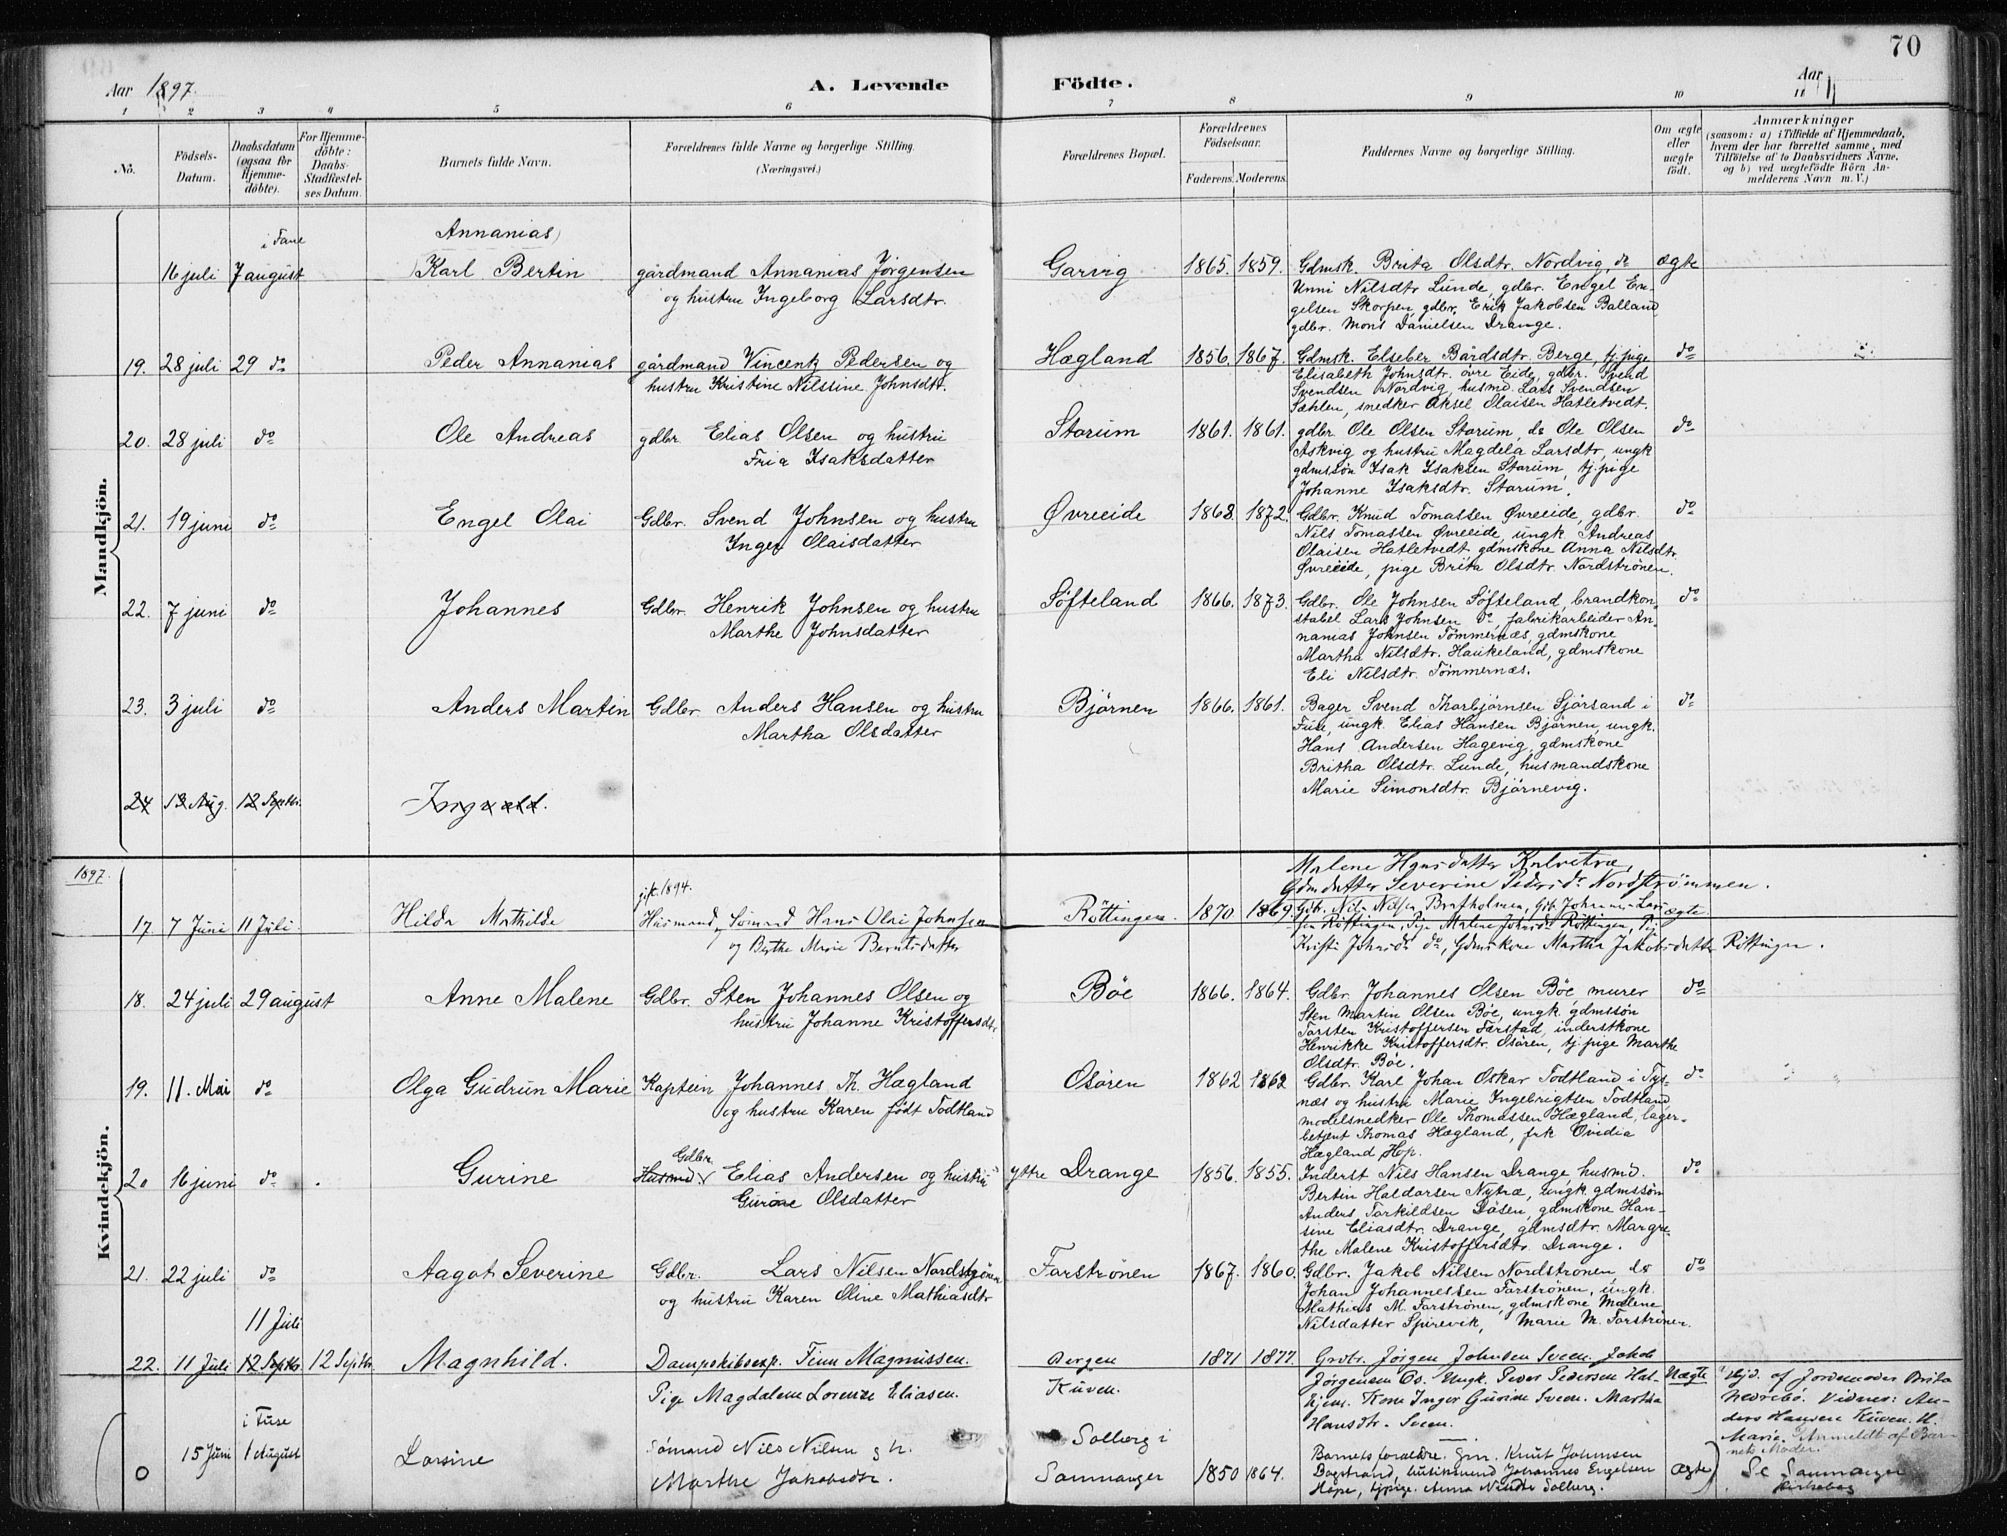 70
Aar 1897.
A. Levende Födte.
Aar
1 2 3 4 5 6 7 8 9 10 11
No.
Födsels-Datum.
Daabsdatum (ogsaa for Hjemme-döbte).
For Hjemme-döbte: Daabs-Stadfæstel-ses Datum.
Barnets fulde Navn.
Forældrenes fulde Navne og borgerlige Stilling.
(Næringsvei.)
Forældrenes Bopæl.
Forældrenes Födselsaar.
Faderens. Moderens.
Faddernes Navne og borgerlige Stilling.
Om ægte eller uægte födt.
Anmærkninger
(saasom: a) i Tilfælde af Hjemmedaab,
hvem der har forrettet samme, med
Tilföielse af to Daabsvidners Navne,
og b) ved uægtefödte Börn An-
melderens Navn m. V.)
Mandkjön.
i Fane
Annanias
16 juli 7 august Karl Bertin gårdmand Annanias Jørgensen Garvig 1865. 1859. Gdmsk. Brita Olsdtr. Nordvig, do ægte
og hustru Ingeborg Larsdtr. Unni Nilsdtr Lunde, gdbr. Engel En-
gelsen Skorpen gdbr. Erik Jakobsen Balland
gdbr. Mons Danielsen Drange.
19. 28 juli 29 do Peder Annanias gårdmand Vincentz Pedersen og Hægland 1856. 1867. Gdmsk. Elseber Bårdsdtr. Berge, tj. pige do
hustru Kristine Nilssine Johnsdtr. Elisabeth Johnsdtr. øvre Eide, gdbr. Svend
Svendsen Nordvig, husmd. Lars Svendsen
Sæhlen, snedker Aksel Olaisen Hatletvedt.
20. 28 juli do Ole Andreas gdbr. Elias Olsen og hustru Storum 1861. 1861. gdbr Ole Olsen Storum, do Ole Olsen do
Fria Isaksdatter Askvig og hustru Magdela Larsdtr, ungk
gdmssøn Isak Isaksen Storum, tj. pige
Johanne Isaksdtr. Storum.
21. 19 juni do Engel Olai Gdbr. Svend Johnsen og hustru Øvreeide 1868. 1872. Gdbr. Knud Tomassen Øvreeide, gdbr. do
Inger Olaisdatter Nils Tomassen Øvreeide, ungk. Andreas
Olaisen Hatletvedt, gdmskone Anna Nilsdtr.
Øvreeide, pige Brita Olsdtr. Nordstrønen.
22. 7 juni do Johannes Gdbr. Henrik Johnsen og hustru Søfteland 1866. 1873. Gdbr. Ole Johnsen Søfteland, brandkon- do
Marthe Johnsdatter stabel Lars Johnsen do, fabrikarbeider An-
nanias Johnsen Tømmernæs, gdmskone
Martha Nilsdtr. Haukeland, gdmskone
Eli Nilsdtr. Tømmernæs.
23. 3 juli do Anders Martin Gdbr Anders Hansen og hustru Bjørnen 1866. 1861. Bager Svend Thorbjørnsen Sjørsand i do
Martha Olsdatter Fuse, ungk. Elias Hansen Bjørnen, ungk.
Hans Andersen Hagevig, gdmskone
Britha Olsdtr. Lunde, husmandskone
Marie Simonsdtr. Bjørnevig.
24 13 Aug. 12 Septbr. Ingvald.
1897.
Kvindekjön.
Malene Hansdatter Kalvetræ,
gift 1894. Gdmdatter Severine Pedersdr Nordstrømmen.
17. 7 Juni 11 Juli. Hilda Mathilde Husmand, Sømand Hans Olai Johnsen Røttingen. 1870 1869. Gdbr. Nils Nilsen Bratholmen, Gdb. Johannes Lar- ægte
og Berthe Marie Berntsdatter sen Røttingen, Pige Malene Johnsdr Røttingen, Pige
Kristi Johnsdr do, Gdmskone Martha Jakobsdatter Røttingen.
18. 24 juli 29 august Anne Malene Gdbr. Sten Johannes Olsen og Bøe 1866. 1864. Gdbr. Johannes Olsen Bøe, murer do
hustru Johanne Kristoffersdtr. Sten Martin Olsen Bøe, ungk. gdmssøn
Torsten Kristoffersen Farstad, inderstkone
Henrikke Kristoffersdtr. Osøren, tj. pige Marthe
Olsdtr. Bøe.
19. 11. Mai do Olga Gudrun Marie Kaptein Johannes Th. Hægland Osøren 1862 1862 Gdbr. Karl Johan Oskar Todtland i Tys- do
og hustru Karen født Todtland næs og hustru Marie Ingebrigtsen Todtland
modelsnedker Ole Thomassen Hægland, lager-
betjent Thomas Hægland, frk Ovidia
Hægland Hop.
Gdbr.
20 16 juni do Gurine Husmd. Elias Andersen og hustru ytre Drange 1856. 1855. Inderst Nils Hansen Drange, husmd. do
Gurine Olsdatter Bertin Haldorsen Nytræ, ungk. gdmssøn
Anders Torkildsen Døsen, gdmskone Han-
sine Eliasdtr. Drange, gdmsdtr. Margre-
the Malene Kristoffersdtr. Drange.
21. 22 juli do Aagot Severine Gdbr. Lars Nilsen Nordstrønen Forstrønen 1867. 1860. Gdbr. Jakob Nilsen Nordstrønen, do do
og hustru Karen Oline Mathiasdtr Johan Johannessen Forstrønen, ungk.
Mathias M. Forstrønen, gdmskone Malene
11 Juli Nilsdatter Spirevik, Marie M. Forstrønen.
22. 11 Juli 12 Septbr. 12 Septbr. Magnhild. Dampskibsexp. Finn Magnussen. Bergen 1871 1877 Grdbr. Jørgen Johnsen Sveen. Jakob
Pige Magdalene Lorenze Eliasen. Kuven. Jørgensen Os. Ungk. Peder Pedersen Hat- Uægte Hjd. af Jordemoder Brita
hjem. Kone Inger Gurine Sveen. Martha Nedrebø. Vidner: An-
Hansdtr. Sveen. ders Hansen Kuven. U.
Marie. Anmeldt af Bar-
nets Moder.
i Fuse
0 15 Juni 1 August Lorsine Sømand Nils Nilsen g h. Solberg i Barnets forældre. Gm. Knut Johnsen
Marthe Jakobsdtr. Sammanger 1850 1864. Bogstrand, husmand Johannes Engelsen ægte Se Sammanger
Hope, tjpige. Anna Nilsdtr Solberg. Kirkebog